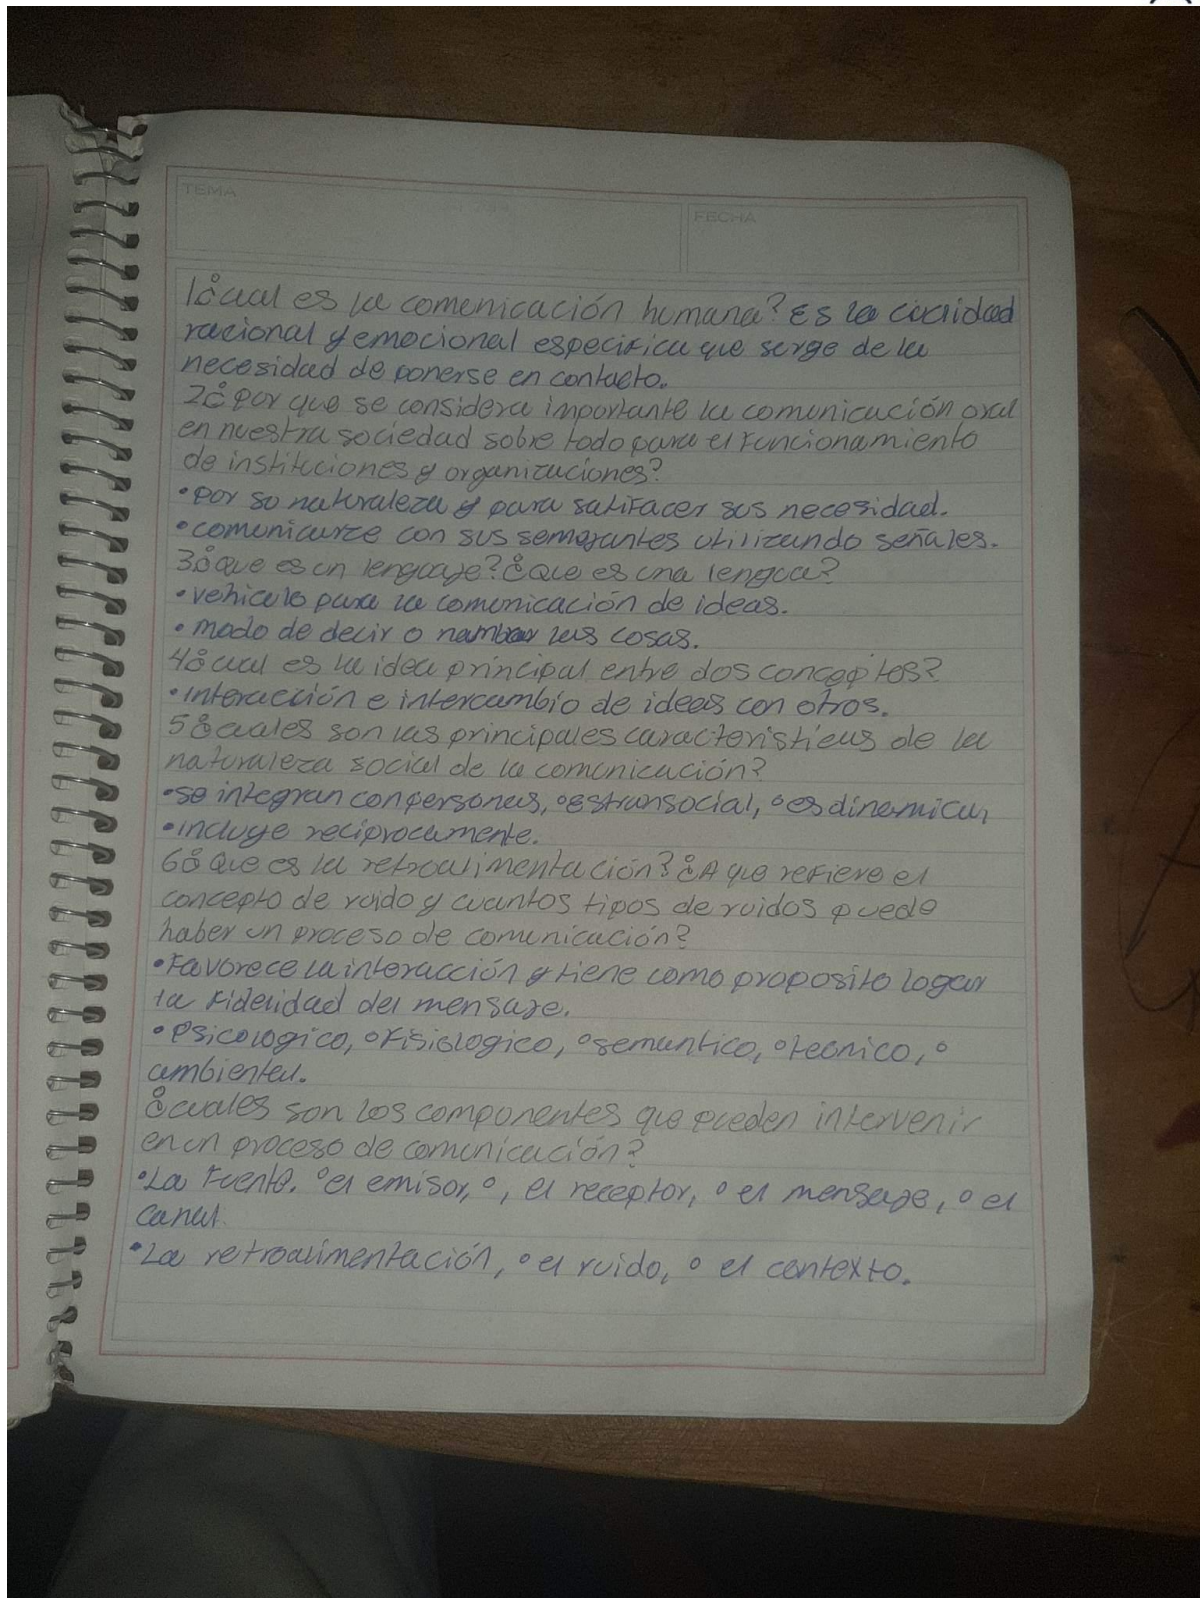 TEMA
FECHA
1¿cual es la comunicación humana? Es la cualidad
racional y emocional especifica que surge de la
necesidad de ponerse en contacto.
2¿por que se considera importante la comunicación oral
en nuestra sociedad sobre todo para el funcionamiento
de instituciones y organizaciones?
•por su naturaleza y para satifacer sus necesidad.
•comunicarze con sus semejantes utilizando señales.
3¿que es un lenguaje? ¿Que es una lengua?
•vehiculo para la comunicación de ideas.
•modo de decir o nombrar las cosas.
4¿cual es la idea principal entre dos conceptos?
•interacción e intercambio de ideas con otros.
5¿cuales son las principales caracteristicas de la
naturaleza social de la comunicación?
•se integran con personas, °es transocial, °es dinamica,
•incluye reciprocamente.
6¿Que es la retroalimentación? ¿A que refiere el
concepto de ruido y cuantos tipos de ruidos puede
haber un proceso de comunicación?
•Favorece la interacción y tiene como proposito logar
la fidelidad del mensaje.
•Psicologico, °fisiologico, °semantico, °tecnico, °
ambiental.
¿cuales son los componentes que pueden intervenir
en un proceso de comunicación?
•La Fuente. °el emisor, °, el receptor, °el mensaje, °el
canal.
•La retroalimentación, °el ruido, °el contexto.